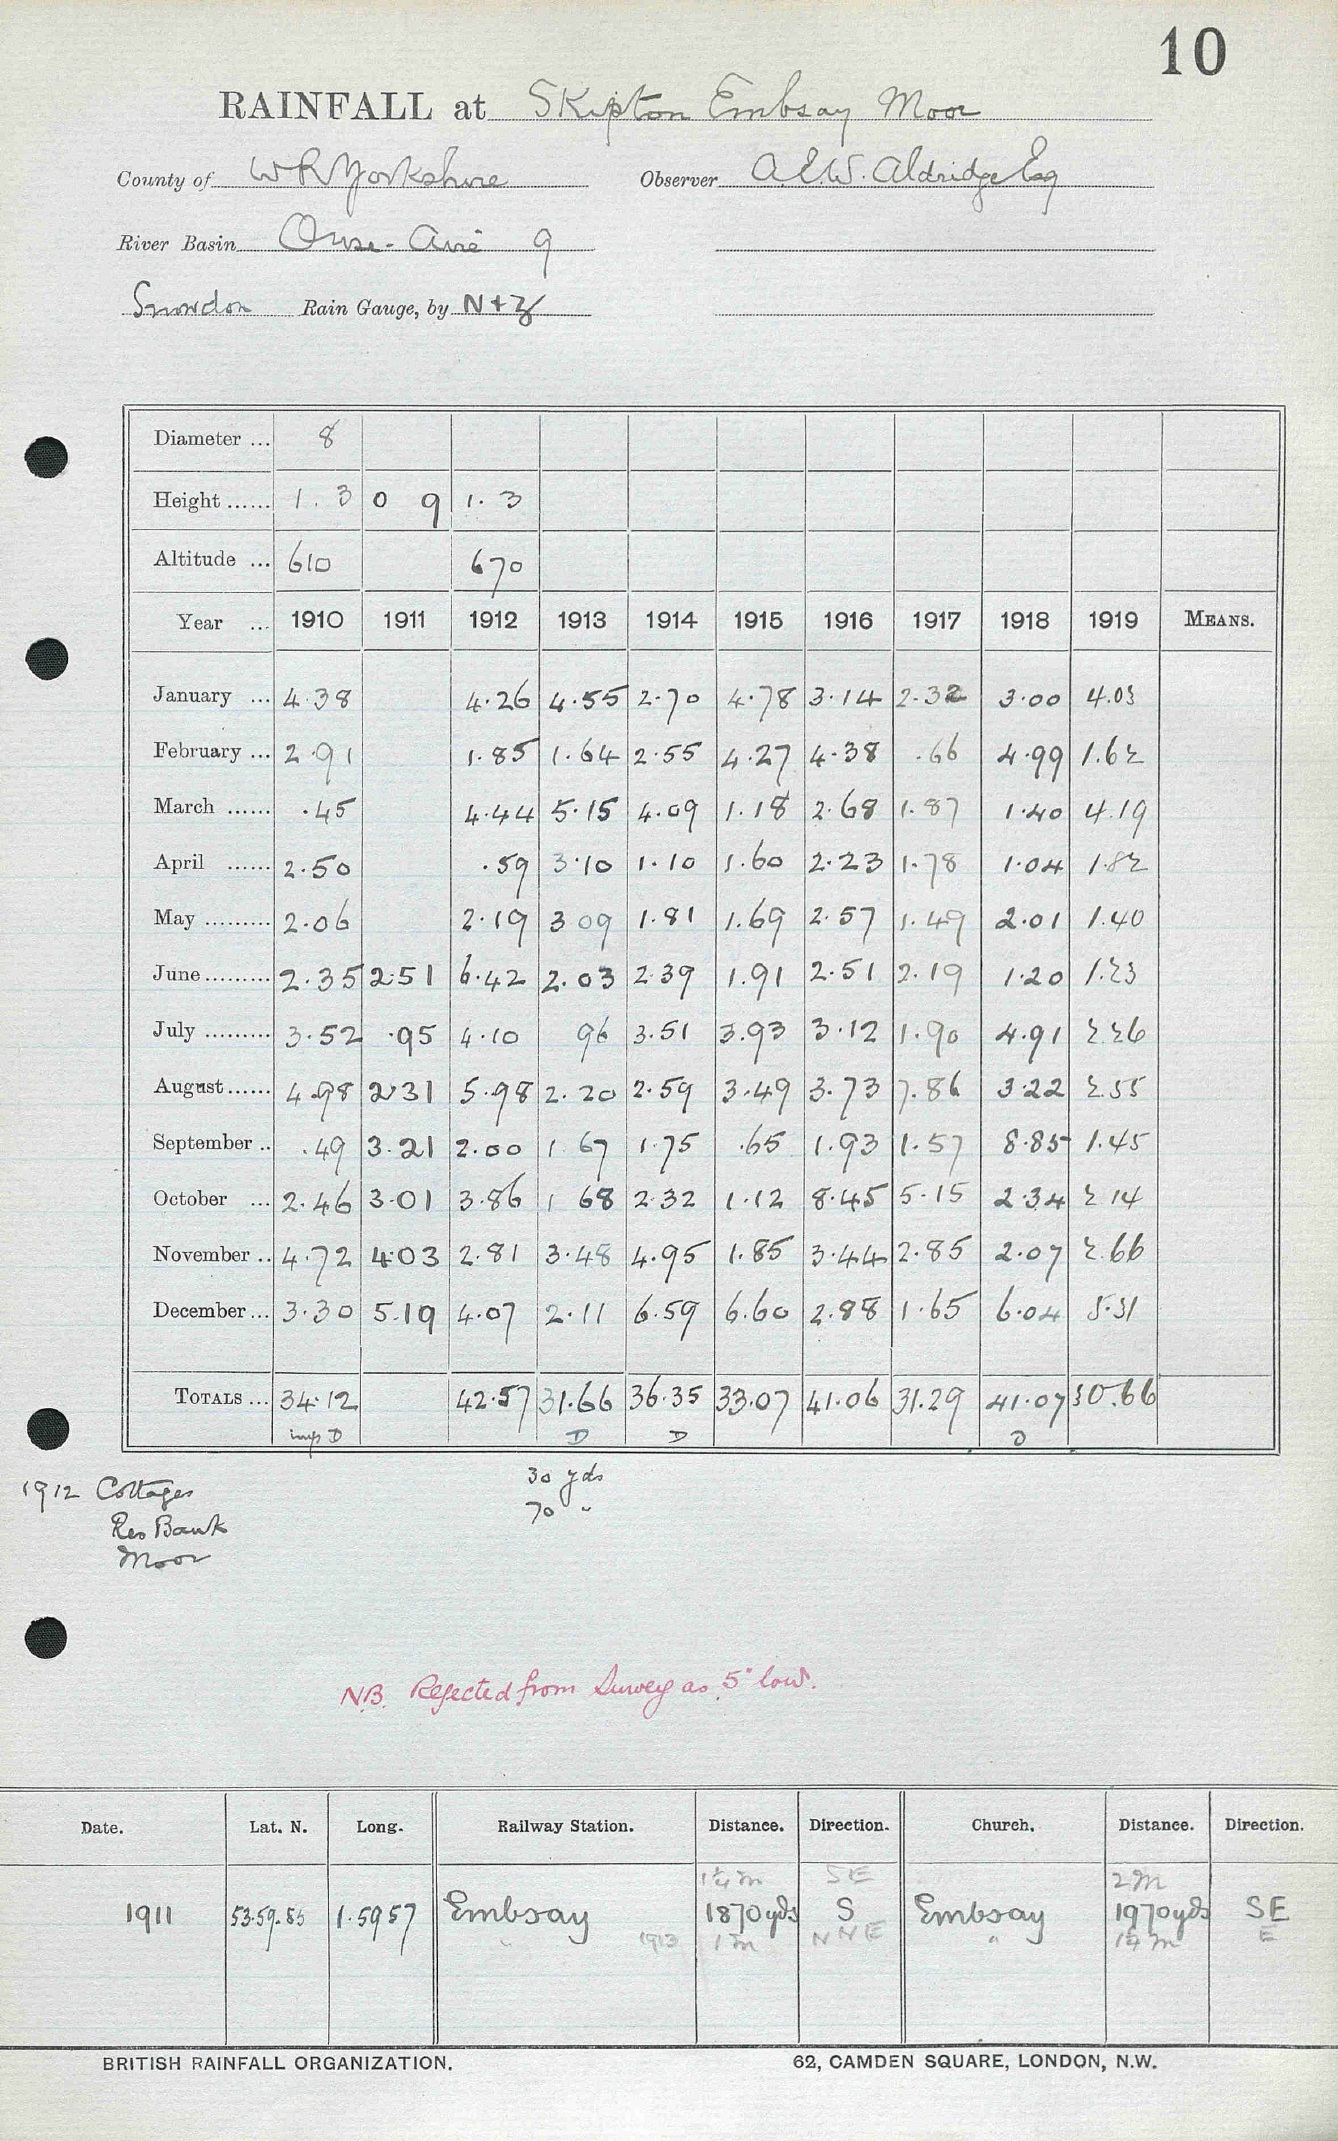 10
RAINFALL at Skipton Embsay Moor
County of W R Yorkshire Observer A.E.W. Aldridge Esq
River Basin Ouse - Aire 9
Snowdon Rain Gauge, by N + Z
Diameter ... 8
Height ...... 1.3 0 9 1.3
Altitude ... 610 670
Year ... 1910 1911 1912 1913 1914 1915 1916 1917 1918 1919 MEANS.
January ... 4.38 4.26 4.55 2.70 4.78 3.14 2.32 3.00 4.03
February ... 2.91 1.85 1.64 2.55 4.27 4.38 .66 4.99 1.62
March ...... .45 4.44 5.15 4.09 1.18 2.68 1.87 1.40 4.19
April ...... 2.50 .59 3.10 1.10 1.60 2.23 1.78 1.04 1.82
May ......... 2.06 2.19 3 09 1.81 1.69 2.57 1.49 2.01 1.40
June ......... 2.35 2.51 6.42 2.03 2.39 1.91 2.51 2.19 1.20 1.23
July ......... 3.52 .95 4.10 96 3.51 3.93 3.12 1.90 4.91 2.26
August ...... 4.98 2.31 5.98 2.20 2.59 3.49 3.73 7.86 3.22 2.55
September .. .49 3.21 2.00 1 67 1.75 .65 1.93 1.57 8.85 1.45
October ... 2.46 3.01 3.86 1 68 2.32 1.12 8.45 5.15 2.34 2.14
November .. 4.72 4.03 2.81 3.48 4.95 1.85 3.44 2.85 2.07 2.66
December ... 3.30 5.19 4.07 2.11 6.59 6.60 2.88 1.65 6.04 5.31
TOTALS ... 34.12 42.57 31.66 36.35 33.07 41.06 31.29 41.07 30.66
D D D D
1912 Cottages 30 yds
Res Bank 70 "
Moor
N.B. Rejected from Survey as 5" low.
Date. Lat. N. Long. Railway Station. Distance. Direction. Church. Distance. Direction.
1¼ m SE 2 m
1911 53.59.85 1.59 57 Embsay 1870 yds S Embsay 1970 yds SE
" 1913 1 m NNE " 1¼ m E
BRITISH RAINFALL ORGANIZATION. 62, CAMDEN SQUARE, LONDON, N.W.